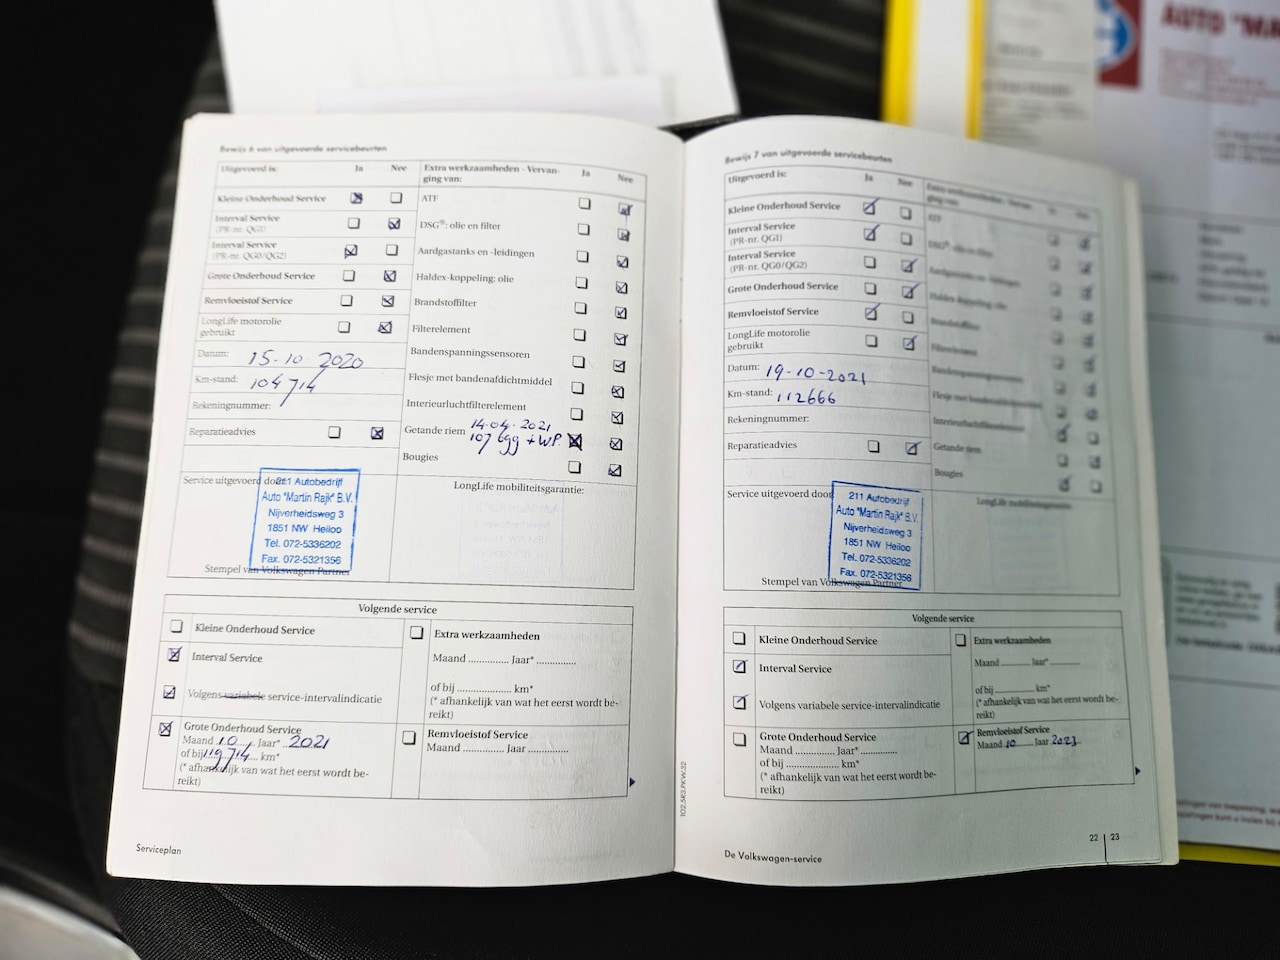 AUTO "MA
Bewijs 6 van uitgevoerde servicebeurten
Uitgevoerd is: Ja Nee
Kleine Onderhoud Service
Interval Service
(PR-nr. QG1)
Interval Service
(PR-nr. QG0/QG2)
Grote Onderhoud Service
Remvloeistof Service
LongLife motorolie
gebruikt
Datum: 15-10 2020
Km-stand: 104714
Rekeningnummer:
Reparatieadvies
Extra werkzaamheden - Vervan-
ging van: Ja Nee
ATF
DSG®: olie en filter
Aardgastanks en -leidingen
Haldex-koppeling: olie
Brandstoffilter
Filterelement
Bandenspanningssensoren
Flesje met bandenafdichtmiddel
Interieurluchtfilterelement
14-04-2021
Getande riem 107699 + WP.
Bougies
Service uitgevoerd door:
211 Autobedrijf
Auto "Martin Rajk" B.V.
Nijverheidsweg 3
1851 NW Heiloo
Tel. 072-5336202
Fax. 072-5321356
Stempel van Volkswagen Partner
LongLife mobiliteitsgarantie:
Volgende service
Kleine Onderhoud Service
Interval Service
Volgens variabele service-intervalindicatie
Grote Onderhoud Service
Maand 10 Jaar* 2021
of bij 119714 km*
(* afhankelijk van wat het eerst wordt be-
reikt)
Extra werkzaamheden
Maand .............. Jaar* ..............
of bij .................... km*
(* afhankelijk van wat het eerst wordt be-
reikt)
Remvloeistof Service
Maand .............. Jaar ..............
Serviceplan
102.5R3.PKW.32
Bewijs 7 van uitgevoerde servicebeurten
Uitgevoerd is: Ja Nee
Kleine Onderhoud Service
Interval Service
(PR-nr. QG1)
Interval Service
(PR-nr. QG0/QG2)
Grote Onderhoud Service
Remvloeistof Service
LongLife motorolie
gebruikt
Datum: 19-10-2021
Km-stand: 112666
Rekeningnummer:
Reparatieadvies
ATF
DSG®: olie en filter
Aardgastanks en -leidingen
Haldex-koppeling: olie
Brandstoffilter
Filterelement
Bandenspanningssensoren
Flesje met bandenafdichtmiddel
Interieurluchtfilterelement
Getande riem
Bougies
Service uitgevoerd door
211 Autobedrijf
Auto "Martin Rajk" B.V.
Nijverheidsweg 3
1851 NW Heiloo
Tel. 072-5336202
Fax. 072-5321356
Stempel van Volkswagen Partner
LongLife mobiliteitsgarantie:
Volgende service
Kleine Onderhoud Service
Interval Service
Volgens variabele service-intervalindicatie
Grote Onderhoud Service
Maand .............. Jaar* ..............
of bij .................... km*
(* afhankelijk van wat het eerst wordt be-
reikt)
Extra werkzaamheden
Maand .......... Jaar* ..........
of bij .................... km*
(* afhankelijk van wat het eerst wordt be-
reikt)
Remvloeistof Service
Maand 10 Jaar 2023
De Volkswagen-service
22 | 23